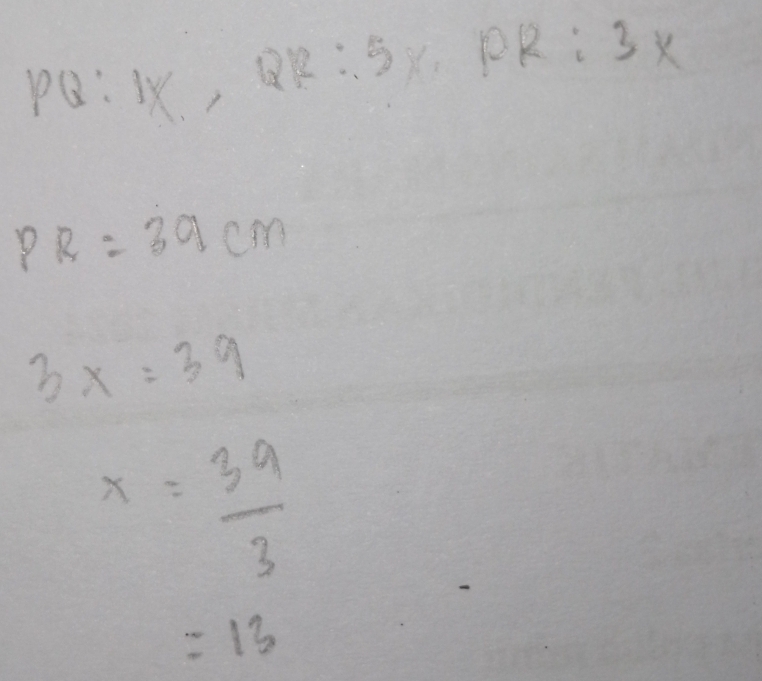 PQ: 1x, QR: 5x. PR: 3x
PR = 39 cm
3x = 39
x = 39
3
= 13